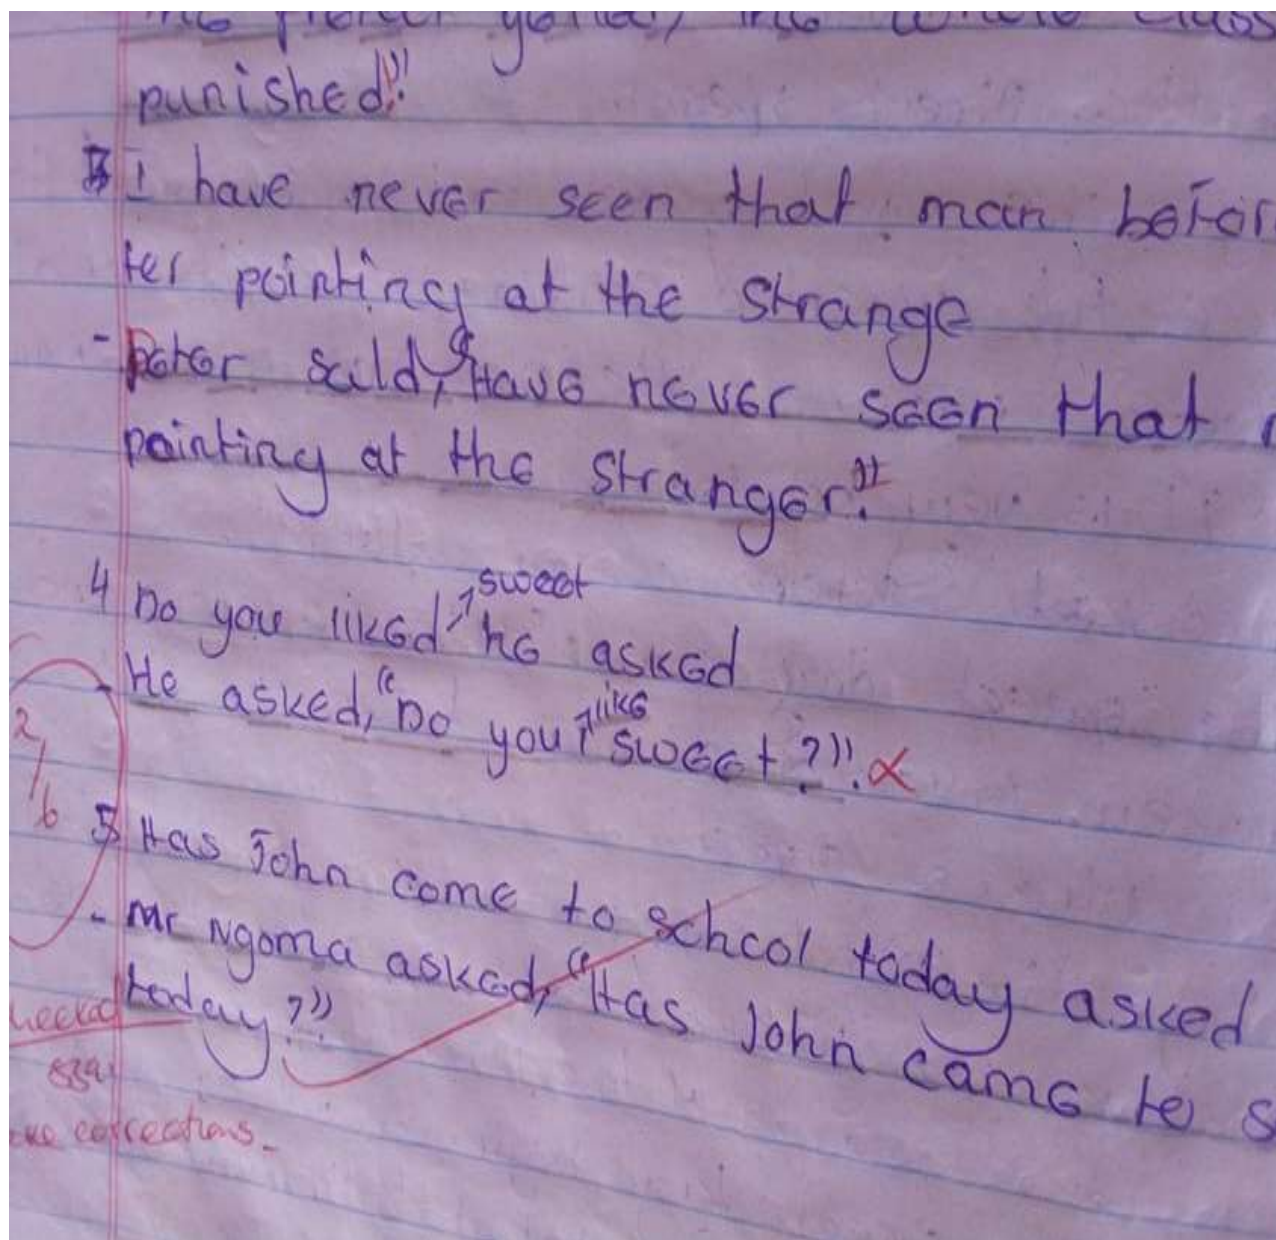 punished!"
3 I have never seen that man befor
ter pointing at the strange
- Peter said, "Have never seen that
pointing at the stranger."
sweet
4 Do you liked he asked
like
- He asked, "Do you sweet?".
2/6
5 Has John come to school today asked
- Mr Ngoma asked, "Has John came to s
today?".
corrections.